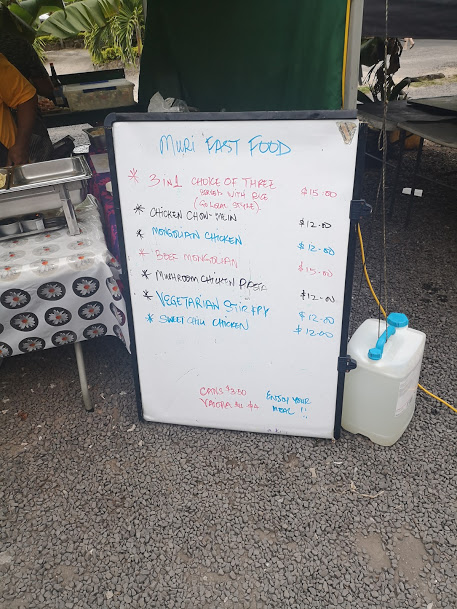 MURI FAST FOOD
* 3 IN 1 CHOICE OF THREE $15.00
WITH RICE
* CHICKEN CHOW-MAIN $12.00
* MONGOLIAN CHICKEN $12.00
* BEEF MONGOLIAN $15.00
* MUSHROOM CHICKEN $12.00
* VEGETARIAN STIR FRY $12.00
* SWEET CHILI CHICKEN $12.00
CANS $3.50
ENJOY YOUR
MEAL !!